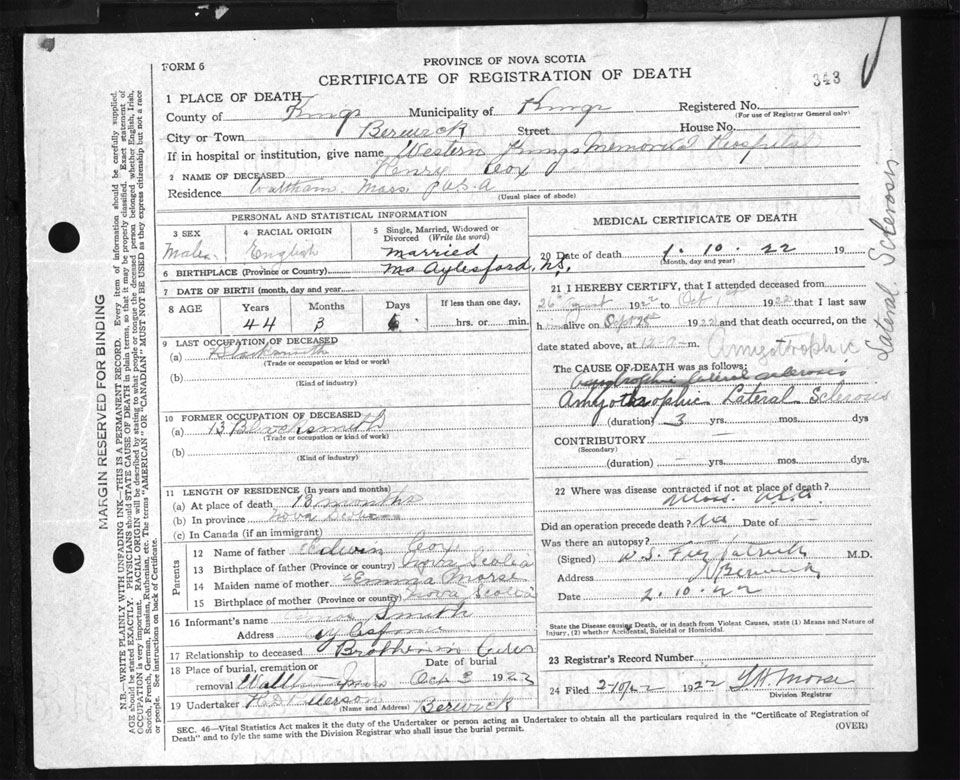 PROVINCE OF NOVA SCOTIA
FORM 6
CERTIFICATE OF REGISTRATION OF DEATH
343
1 PLACE OF DEATH
County of Kings Municipality of Kings Registered No.
(For use of Registrar General only)
City or Town Berwick Street House No.
If in hospital or institution, give name Western Kings Memorial Hospital
2 NAME OF DECEASED Henry Cox
Residence Waltham Mass U.S.A
(Usual place of abode)
PERSONAL AND STATISTICAL INFORMATION
3 SEX
Male
4 RACIAL ORIGIN
English
5 Single, Married, Widowed or Divorced (Write the word)
Married
6 BIRTHPLACE (Province or Country) Aylesford, N.S.
7 DATE OF BIRTH (month, day and year)
8 AGE Years Months Days If less than one day,
44 3 6 hrs. or min.
9 LAST OCCUPATION OF DECEASED
(a) Blacksmith
(Trade or occupation or kind of work)
(b)
(Kind of industry)
10 FORMER OCCUPATION OF DECEASED
(a) Blacksmith
(Trade or occupation or kind of work)
(b)
(Kind of industry)
11 LENGTH OF RESIDENCE (In years and months)
(a) At place of death months
(b) In province Nova Scotia
(c) In Canada (if an immigrant)
Parents
12 Name of father Edwin Cox
13 Birthplace of father (Province or country) Nova Scotia
14 Maiden name of mother Emma Morse
15 Birthplace of mother (Province or country) Nova Scotia
16 Informant's name Smith
Address Aylesford
17 Relationship to deceased Brother in
18 Place of burial, cremation or removal Waltham Date of burial Oct 3 1922
19 Undertaker Berwick
(Name and Address)
MEDICAL CERTIFICATE OF DEATH
20 Date of death 1. 10. 22 19
(Month, day and year)
21 I HEREBY CERTIFY, that I attended deceased from
26 1922 to Oct 1st 1922 that I last saw
h alive on Sept 25 1922 and that death occurred, on
date stated above, at m. Amyotrophic
Lateral Sclerosis
The CAUSE OF DEATH was as follows:
lateral sclerosis
Amyotrophic Lateral Sclerosis
(duration) 3 yrs. mos. dys
CONTRIBUTORY
(Secondary)
(duration) yrs. mos. dys
22 Where was disease contracted if not at place of death?
Mass. U.S.A.
Did an operation precede death? No Date of
Was there an autopsy?
(Signed) W. S. M.D.
Address Berwick
Date 2. 10. 22
State the Disease causing Death, or in death from Violent Causes, state (1) Means and Nature of
Injury, (2) whether Accidental, Suicidal or Homicidal.
23 Registrar's Record Number
24 Filed 1922 Morse
Division Registrar
SEC. 46—Vital Statistics Act makes it the duty of the Undertaker or person acting as Undertaker to obtain all the particulars required in the "Certificate of Registration of
Death" and to fyle the same with the Division Registrar who shall issue the burial permit.
(OVER)
MARGIN RESERVED FOR BINDING
N.B.—WRITE PLAINLY WITH UNFADING INK—THIS IS A PERMANENT RECORD. Every item of information should be carefully supplied.
AGE should be stated EXACTLY. PHYSICIANS should STATE CAUSE OF DEATH in plain terms, so that it may be properly classified. Exact statement of
OCCUPATION is very important. RACIAL ORIGIN will be described by stating to what people or tongue the deceased person belonged whether English, Irish,
Scotch, French, German, Russian, Ruthenian, etc. The terms "AMERICAN" or "CANADIAN" MUST NOT BE USED as they express citizenship but not a race
or people. See instructions on back of Certificate.